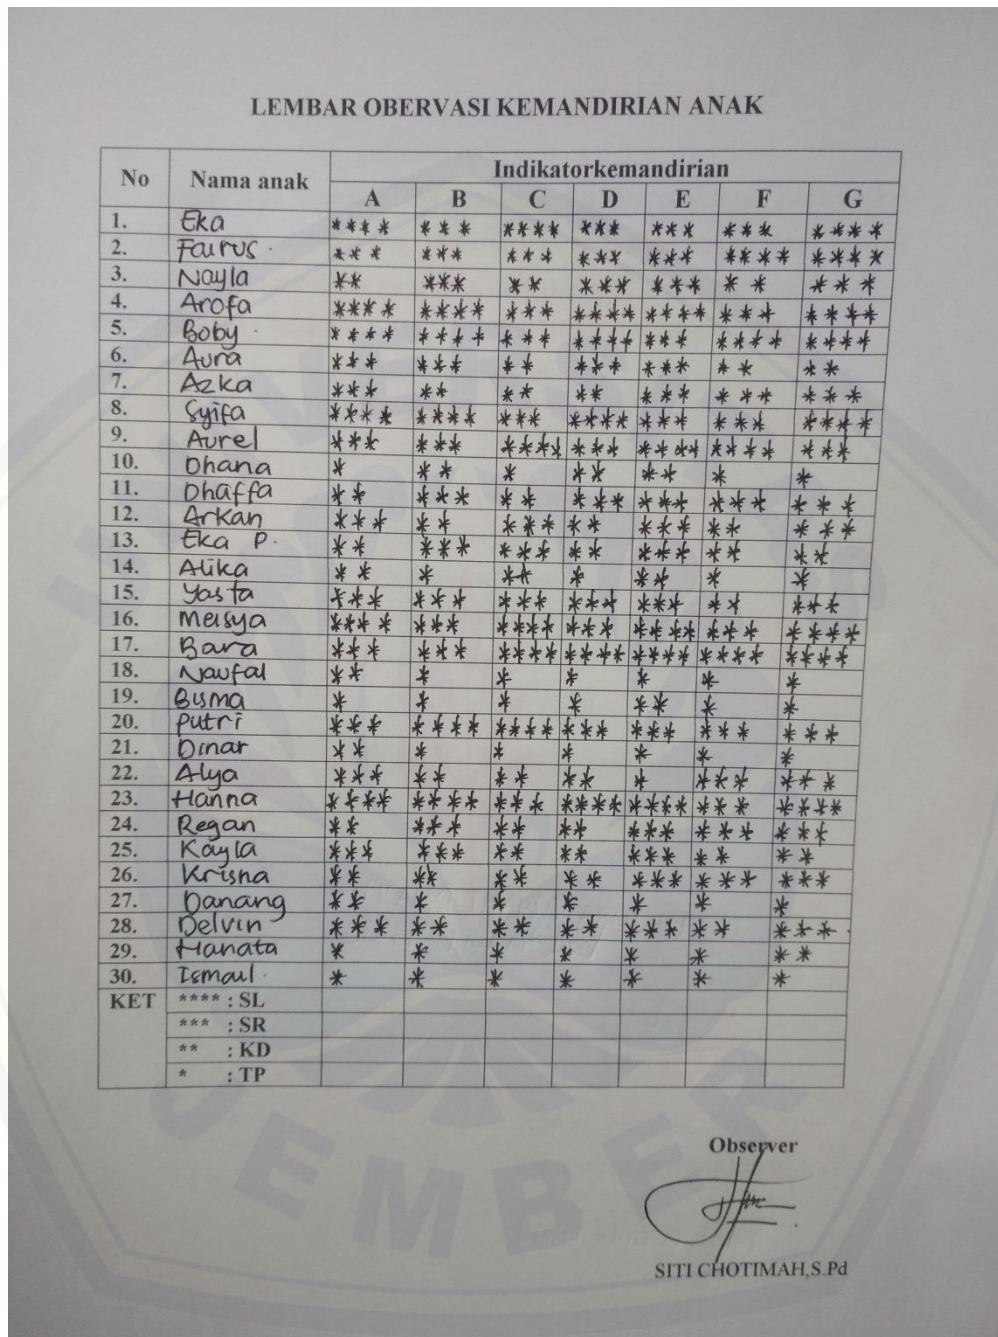 LEMBAR OBERVASI KEMANDIRIAN ANAK
No Nama anak Indikatorkemandirian
A B C D E F G
1. Eka **** *** **** *** *** *** ****
2. Fairus. *** *** *** *** *** **** ****
3. Nayla ** *** ** *** *** ** ***
4. Arofa **** **** *** **** **** *** ****
5. Boby. **** **** *** **** *** **** ****
6. Aura *** *** ** *** *** ** **
7. Azka *** ** ** ** *** *** ***
8. Syifa **** **** *** **** *** *** ****
9. Aurel *** *** **** *** **** **** ***
10. Dhana * ** * ** ** * *
11. Dhaffa ** *** ** *** *** *** ***
12. Arkan *** ** *** ** *** ** ***
13. Eka P. ** *** *** ** *** ** **
14. Alika ** * ** * ** * *
15. Yasta *** *** *** *** *** ** ***
16. Meisya **** *** **** *** **** *** ****
17. Bara *** *** **** **** **** **** ****
18. Naufal ** * * * * * *
19. Bisma * * * * ** * *
20. Putri *** **** **** *** *** *** ***
21. Dinar ** * * * * * *
22. Alya *** ** ** ** * *** ***
23. Hanna **** **** *** **** **** *** ****
24. Regan ** *** ** ** *** *** ***
25. Kayla *** *** ** ** *** ** **
26. Krisna ** ** ** ** *** *** ***
27. Danang ** * * * * * *
28. Delvin *** ** ** ** *** ** ***.
29. Hanata * * * * * * **
30. Ismail. * * * * * * *
KET **** : SL
*** : SR
** : KD
* : TP
Observer
SITI CHOTIMAH,S.Pd
JEMBER